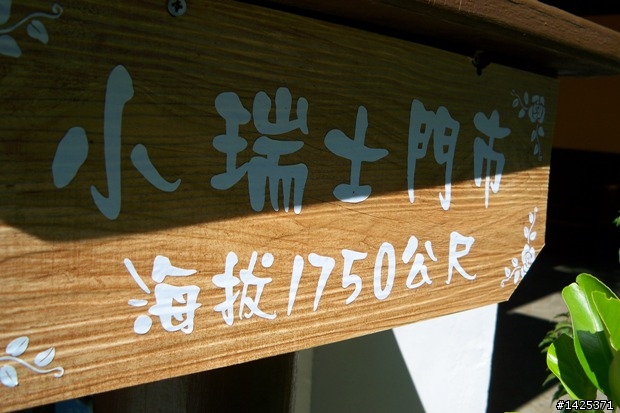 小瑞士門市
海拔1750公尺
#1425371